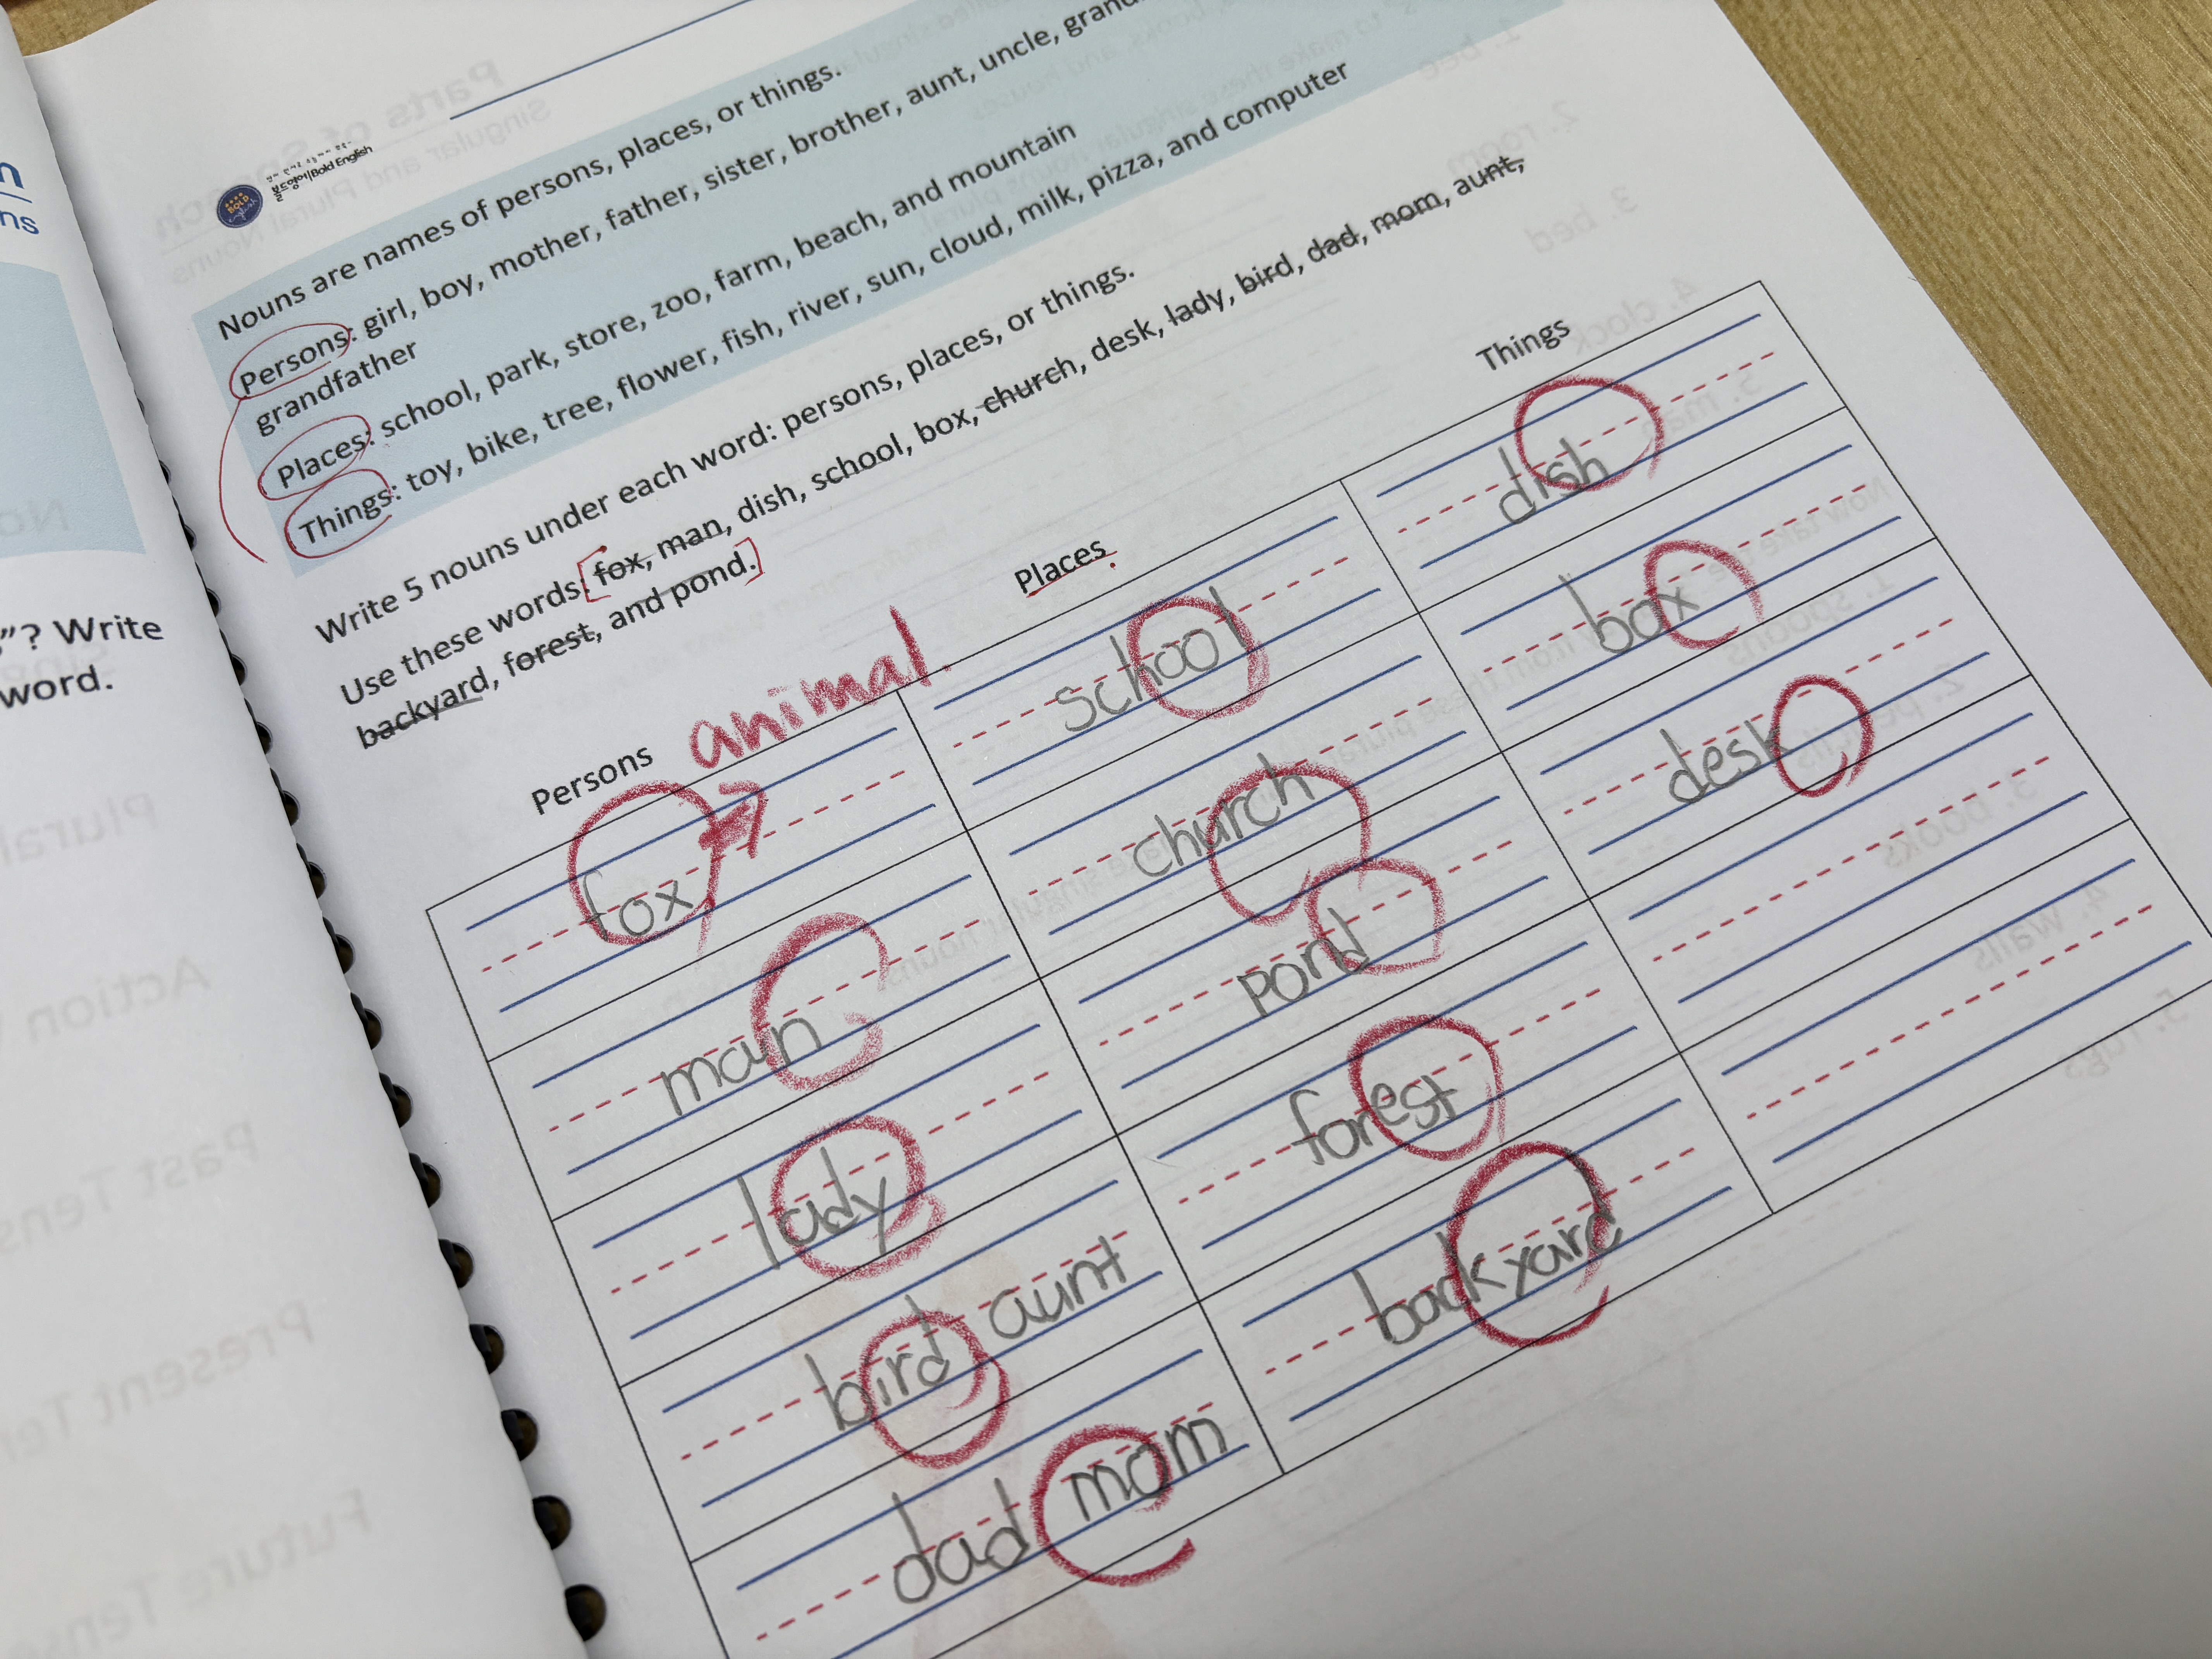 볼드영어|Bold English
BOLD
English
Nouns are names of persons, places, or things.
Persons: girl, boy, mother, father, sister, brother, aunt, uncle,
grandfather
Places: school, park, store, zoo, farm, beach, and mountain
Things: toy, bike, tree, flower, fish, river, sun, cloud, milk, pizza, and computer
Write 5 nouns under each word: persons, places, or things.
Use these words: fox, man, dish, school, box, church, desk, lady, bird, dad, mom, aunt,
backyard, forest, and pond.
Persons animal. Places Things
fox school dish
man church box
lady pond desk
bird aunt forest
dad mom backyard
"? Write
word.